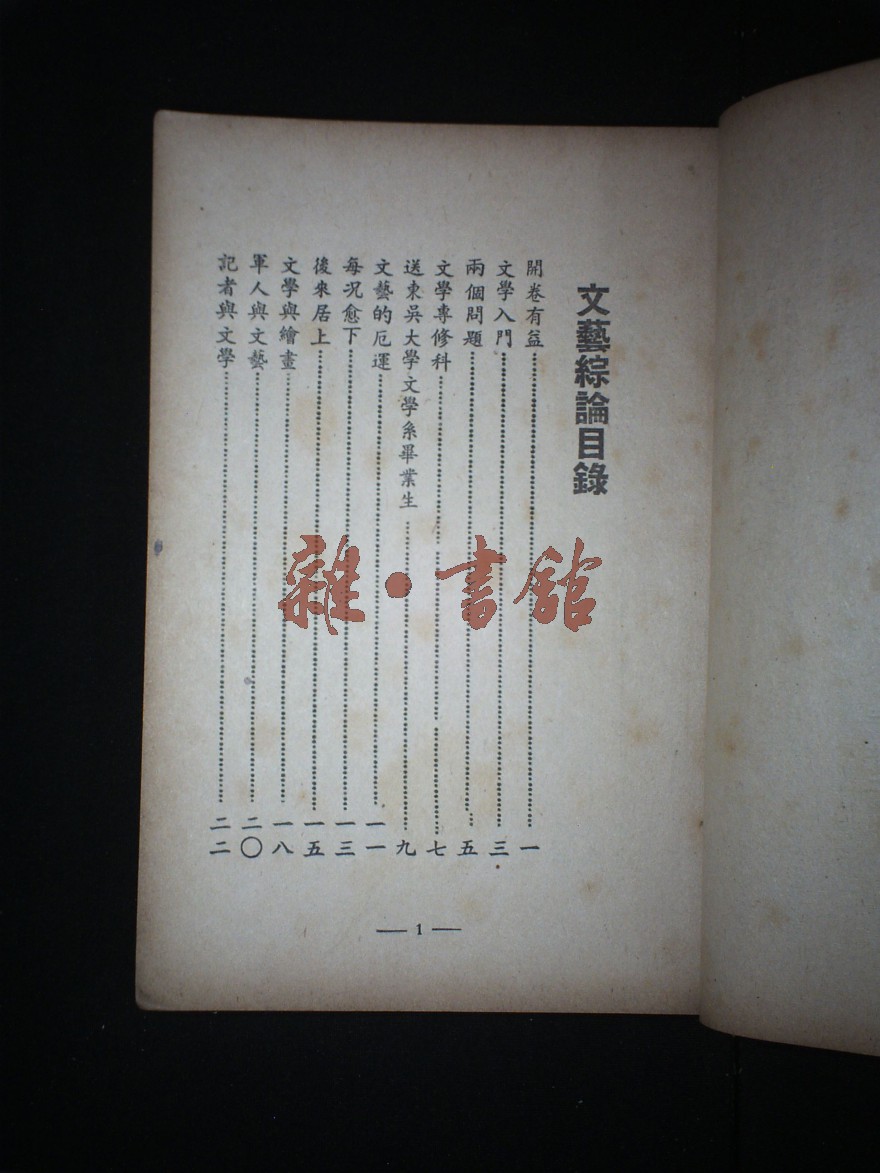 文藝綜論目錄
開卷有益……一
文學入門……三
兩個問題……五
文學專修科……七
送東吳大學文學系畢業生……九
文藝的厄運……一一
每况愈下……一三
後來居上……一五
文學與繪畫……一八
軍人與文藝……二〇
記者與文學……二二
— 1 —
雜·書館